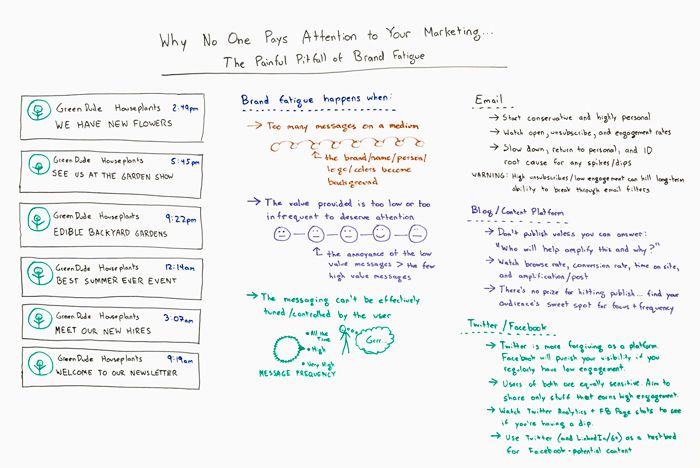 Why No One Pays Attention to Your Marketing...
The Painful Pitfall of Brand Fatigue
Green Dude Houseplants 2:49pm
WE HAVE NEW FLOWERS
Green Dude Houseplants 5:45pm
SEE US AT THE GARDEN SHOW
Green Dude Houseplants 9:22pm
EDIBLE BACKYARD GARDENS
Green Dude Houseplants 12:14am
BEST SUMMER EVER EVENT
Green Dude Houseplants 3:07am
MEET OUR NEW HIRES
Green Dude Houseplants 9:19am
WELCOME TO OUR NEWSLETTER
Brand fatigue happens when:
→ Too many messages on a medium
↑ the brand/name/person/
logo/colors become
background
→ The value provided is too low or too
infrequent to deserve attention
↑ the annoyance of the low
value messages > the few
high value messages
→ The messaging can't be effectively
tuned/controlled by the user
All the
Time
High
Very High
Grrr...
MESSAGE FREQUENCY
Email
→ Start conservative and highly personal
→ Watch open, unsubscribe, and engagement rates
→ Slow down, return to personal, and ID
root cause for any spikes/dips
WARNING: High unsubscribes/low engagement can kill long-term
ability to break through email filters
Blog/Content Platform
→ Don't publish unless you can answer:
"Who will help amplify this and why?"
→ Watch browse rate, conversion rate, time on site,
and amplification/post
→ There's no prize for hitting publish... find your
audience's sweet spot for focus + frequency
Twitter/Facebook
→ Twitter is more forgiving as a platform.
Facebook will punish your visibility if you
regularly have low engagement.
→ Users of both are equally sensitive. Aim to
share only stuff that earns high engagement.
→ Watch Twitter Analytics + FB Page stats to see
if you're having a dip.
→ Use Twitter (and LinkedIn/G+) as a testbed
for Facebook-potential content